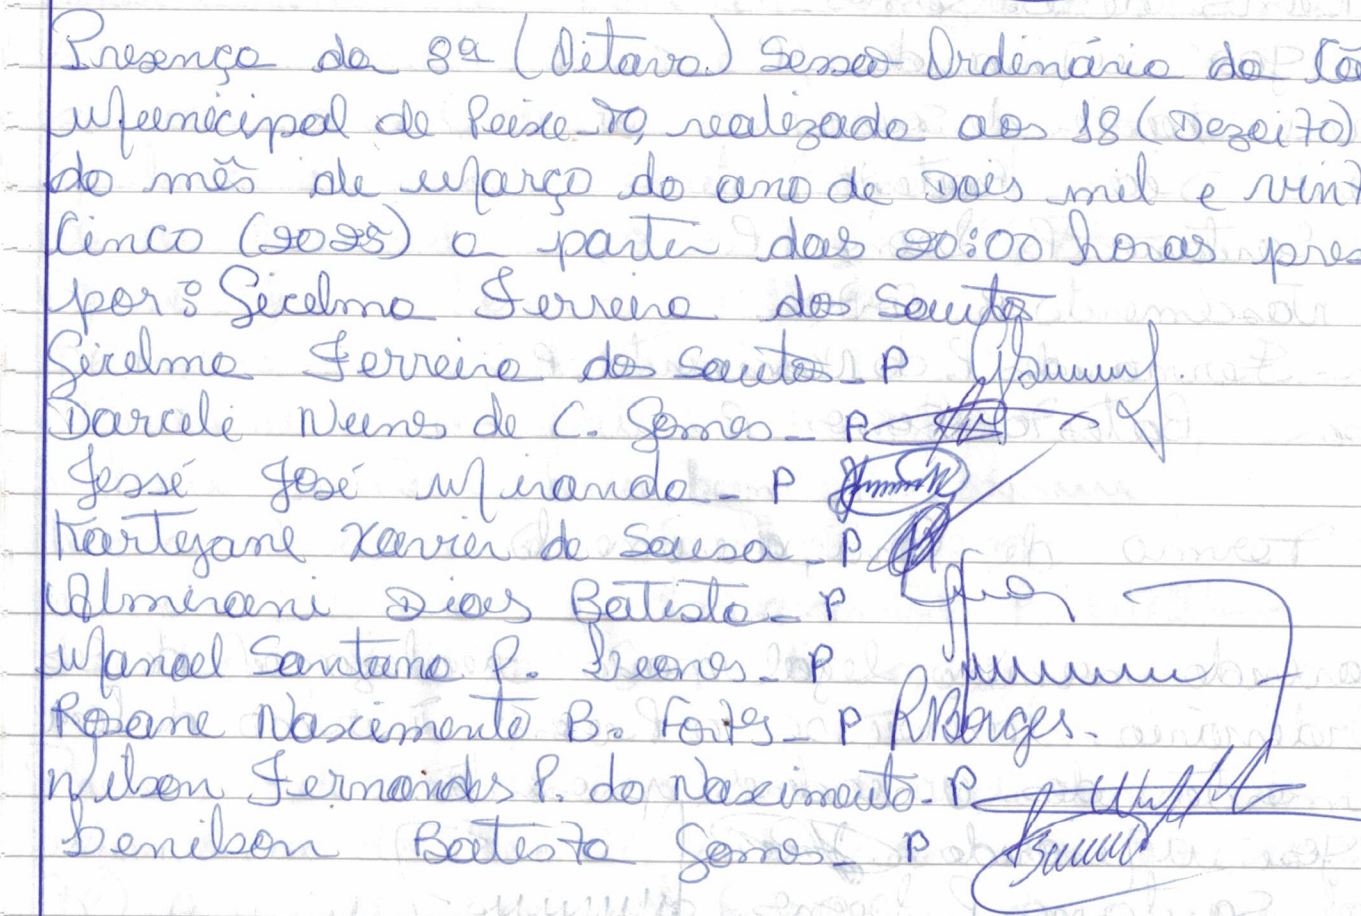 Presença da 8ª (Oitava) Sessão Ordinária da Câ
Municipal de Peixe-TO, realizada aos 18 (Dezoito)
do mês de Março do ano de Dois mil e vint
Cinco (2025) a partir das 20:00 horas pres
por: Gicelma Ferreira dos Santos
Gicelma Ferreira dos Santos - P
Darceli Nunes de C. Gomes - P
Jessé José Miranda - P
Kartejane Xavier de Sousa - P
Almirani Dias Batista - P
Manoel Santana P. - P
Rosane Nascimento B. Fortes - P RBorges.
Nilson Fernandes P. do Nascimento - P
Denilson Batista Gomes - P